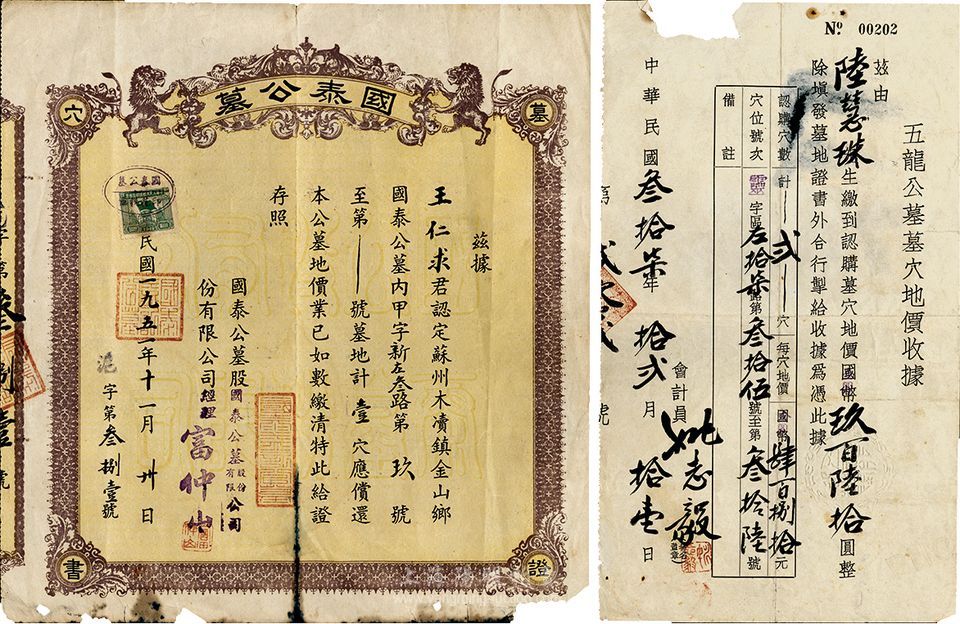 國泰公墓
墓
穴
證
書
茲據
王仁求君認定蘇州木瀆鎮金山鄉
國泰公墓內甲字新左叁路第玖號
至第—號墓地計壹穴應償還
本公墓地價業已如數繳清特此給證
存照
國泰公墓股
份有限公司
經理
國泰公墓股份有限公司
富仲
國泰公墓
民國一九五二年十一月廿日
滬字第叁捌壹號
№ 00202
五龍公墓墓穴地價收據
茲由
陸慧珠
生繳到認購墓穴地價國幣玖百陸拾圓整
除塡發墓地證書外合行掣給收據爲憑此據
認購穴數
計—貳—穴
每穴地價
國幣肆百捌拾元
穴位號次
字區叁拾柒
第叁拾伍號至第叁拾陸號
備註
中華民國叁拾柒年拾貳月拾壹日
會計員
姚志毅
號